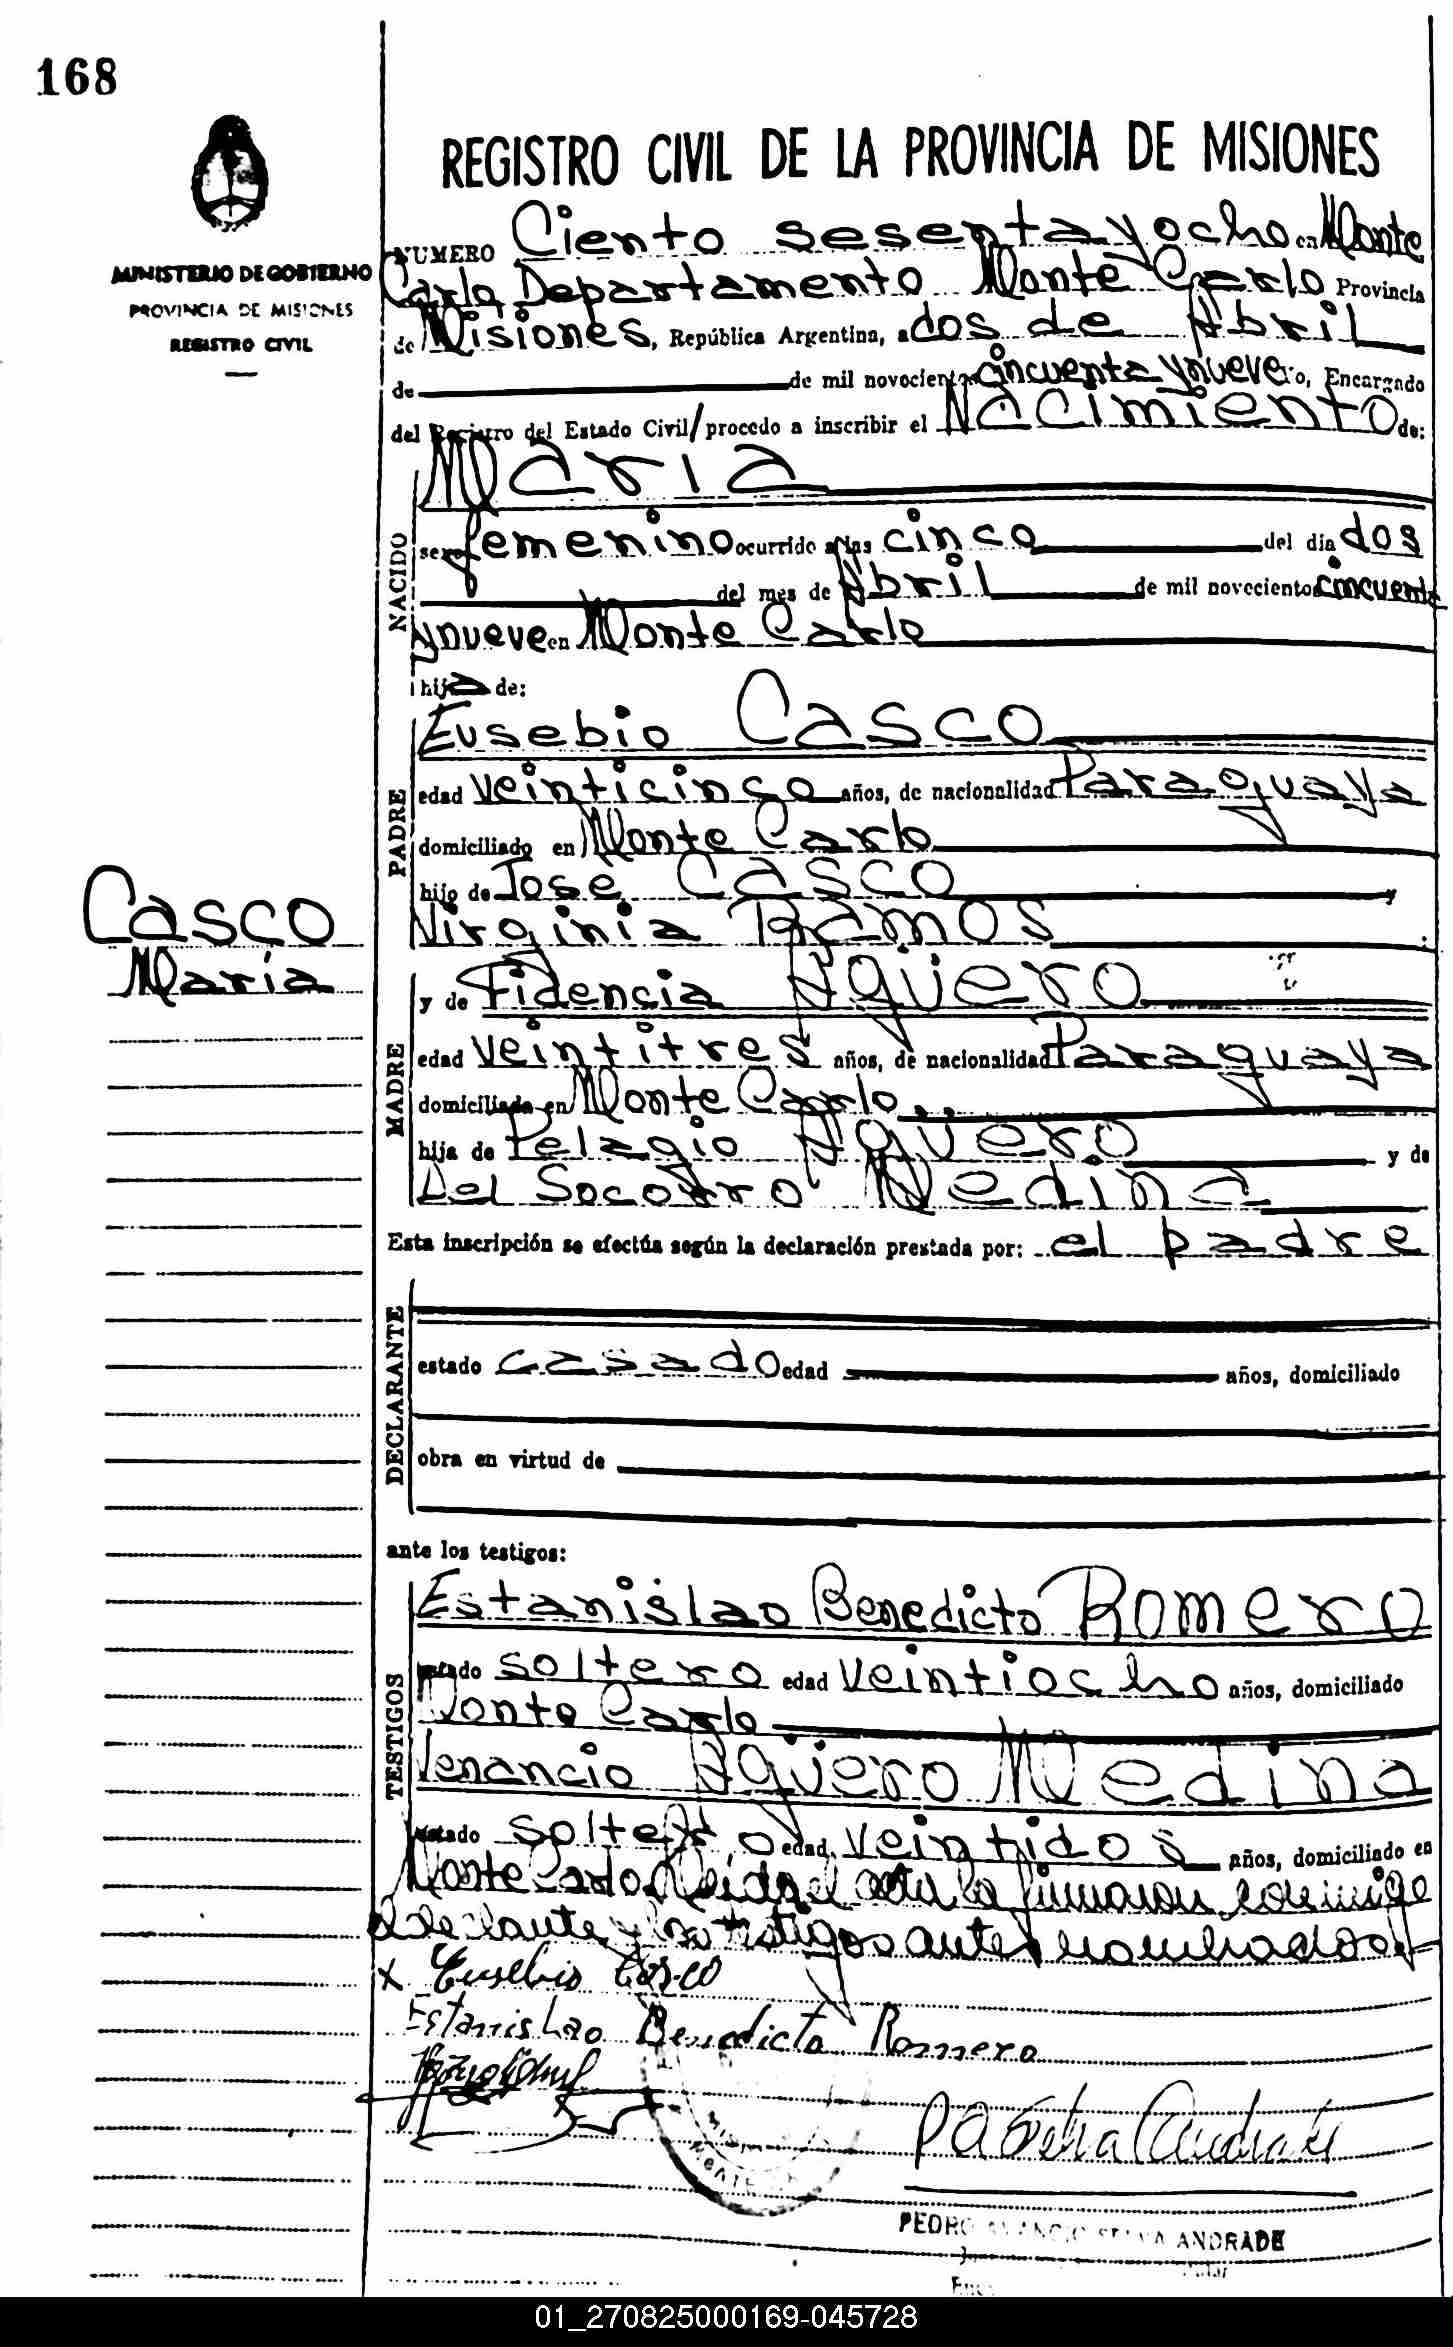 168
REGISTRO CIVIL DE LA PROVINCIA DE MISIONES
MINISTERIO DE GOBIERNO
PROVINCIA DE MISIONES
REGISTRO CIVIL
NUMERO Ciento sesenta y ocho en Monte
Carlo Departamento Monte Carlo Provincia
de Misiones, República Argentina, a dos de Abril
de de mil novecientos cincuenta y nueve yo, Encargado
del Registro del Estado Civil/procedo a inscribir el Nacimiento de:
Maria
NACIDO
sexo femenino ocurrido a las cinco del día dos
del mes de Abril de mil novecientos cincuenta
y nueve en Monte Carlo
hija de:
PADRE
Eusebio Casco
edad veinticinco años, de nacionalidad Paraguaya
domiciliado en Monte Carlo
hijo de Jose Casco y
Virginia Ramos
Casco
Maria
MADRE
y de Fidencia Agüero
edad veintitres años, de nacionalidad Paraguaya
domiciliada en Monte Carlo
hija de Pelagio Agüero y de
Del Socorro Medina
Esta inscripción se efectúa según la declaración prestada por: el padre
DECLARANTE
estado casado edad años, domiciliado
obra en virtud de
ante los testigos:
TESTIGOS
Estanislao Benedicto Romero
estado soltero edad veintiocho años, domiciliado
Monte Carlo
Venancio Agüero Medina
estado soltero edad veintidos años, domiciliado en
Monte Carlo Leída el acta la firmaron conmigo
el declarante y los testigos antes nombrados
x Eusebio Casco
Estanislao Benedicto Romero
PEDRO ANDRADE
01_270825000169-045728